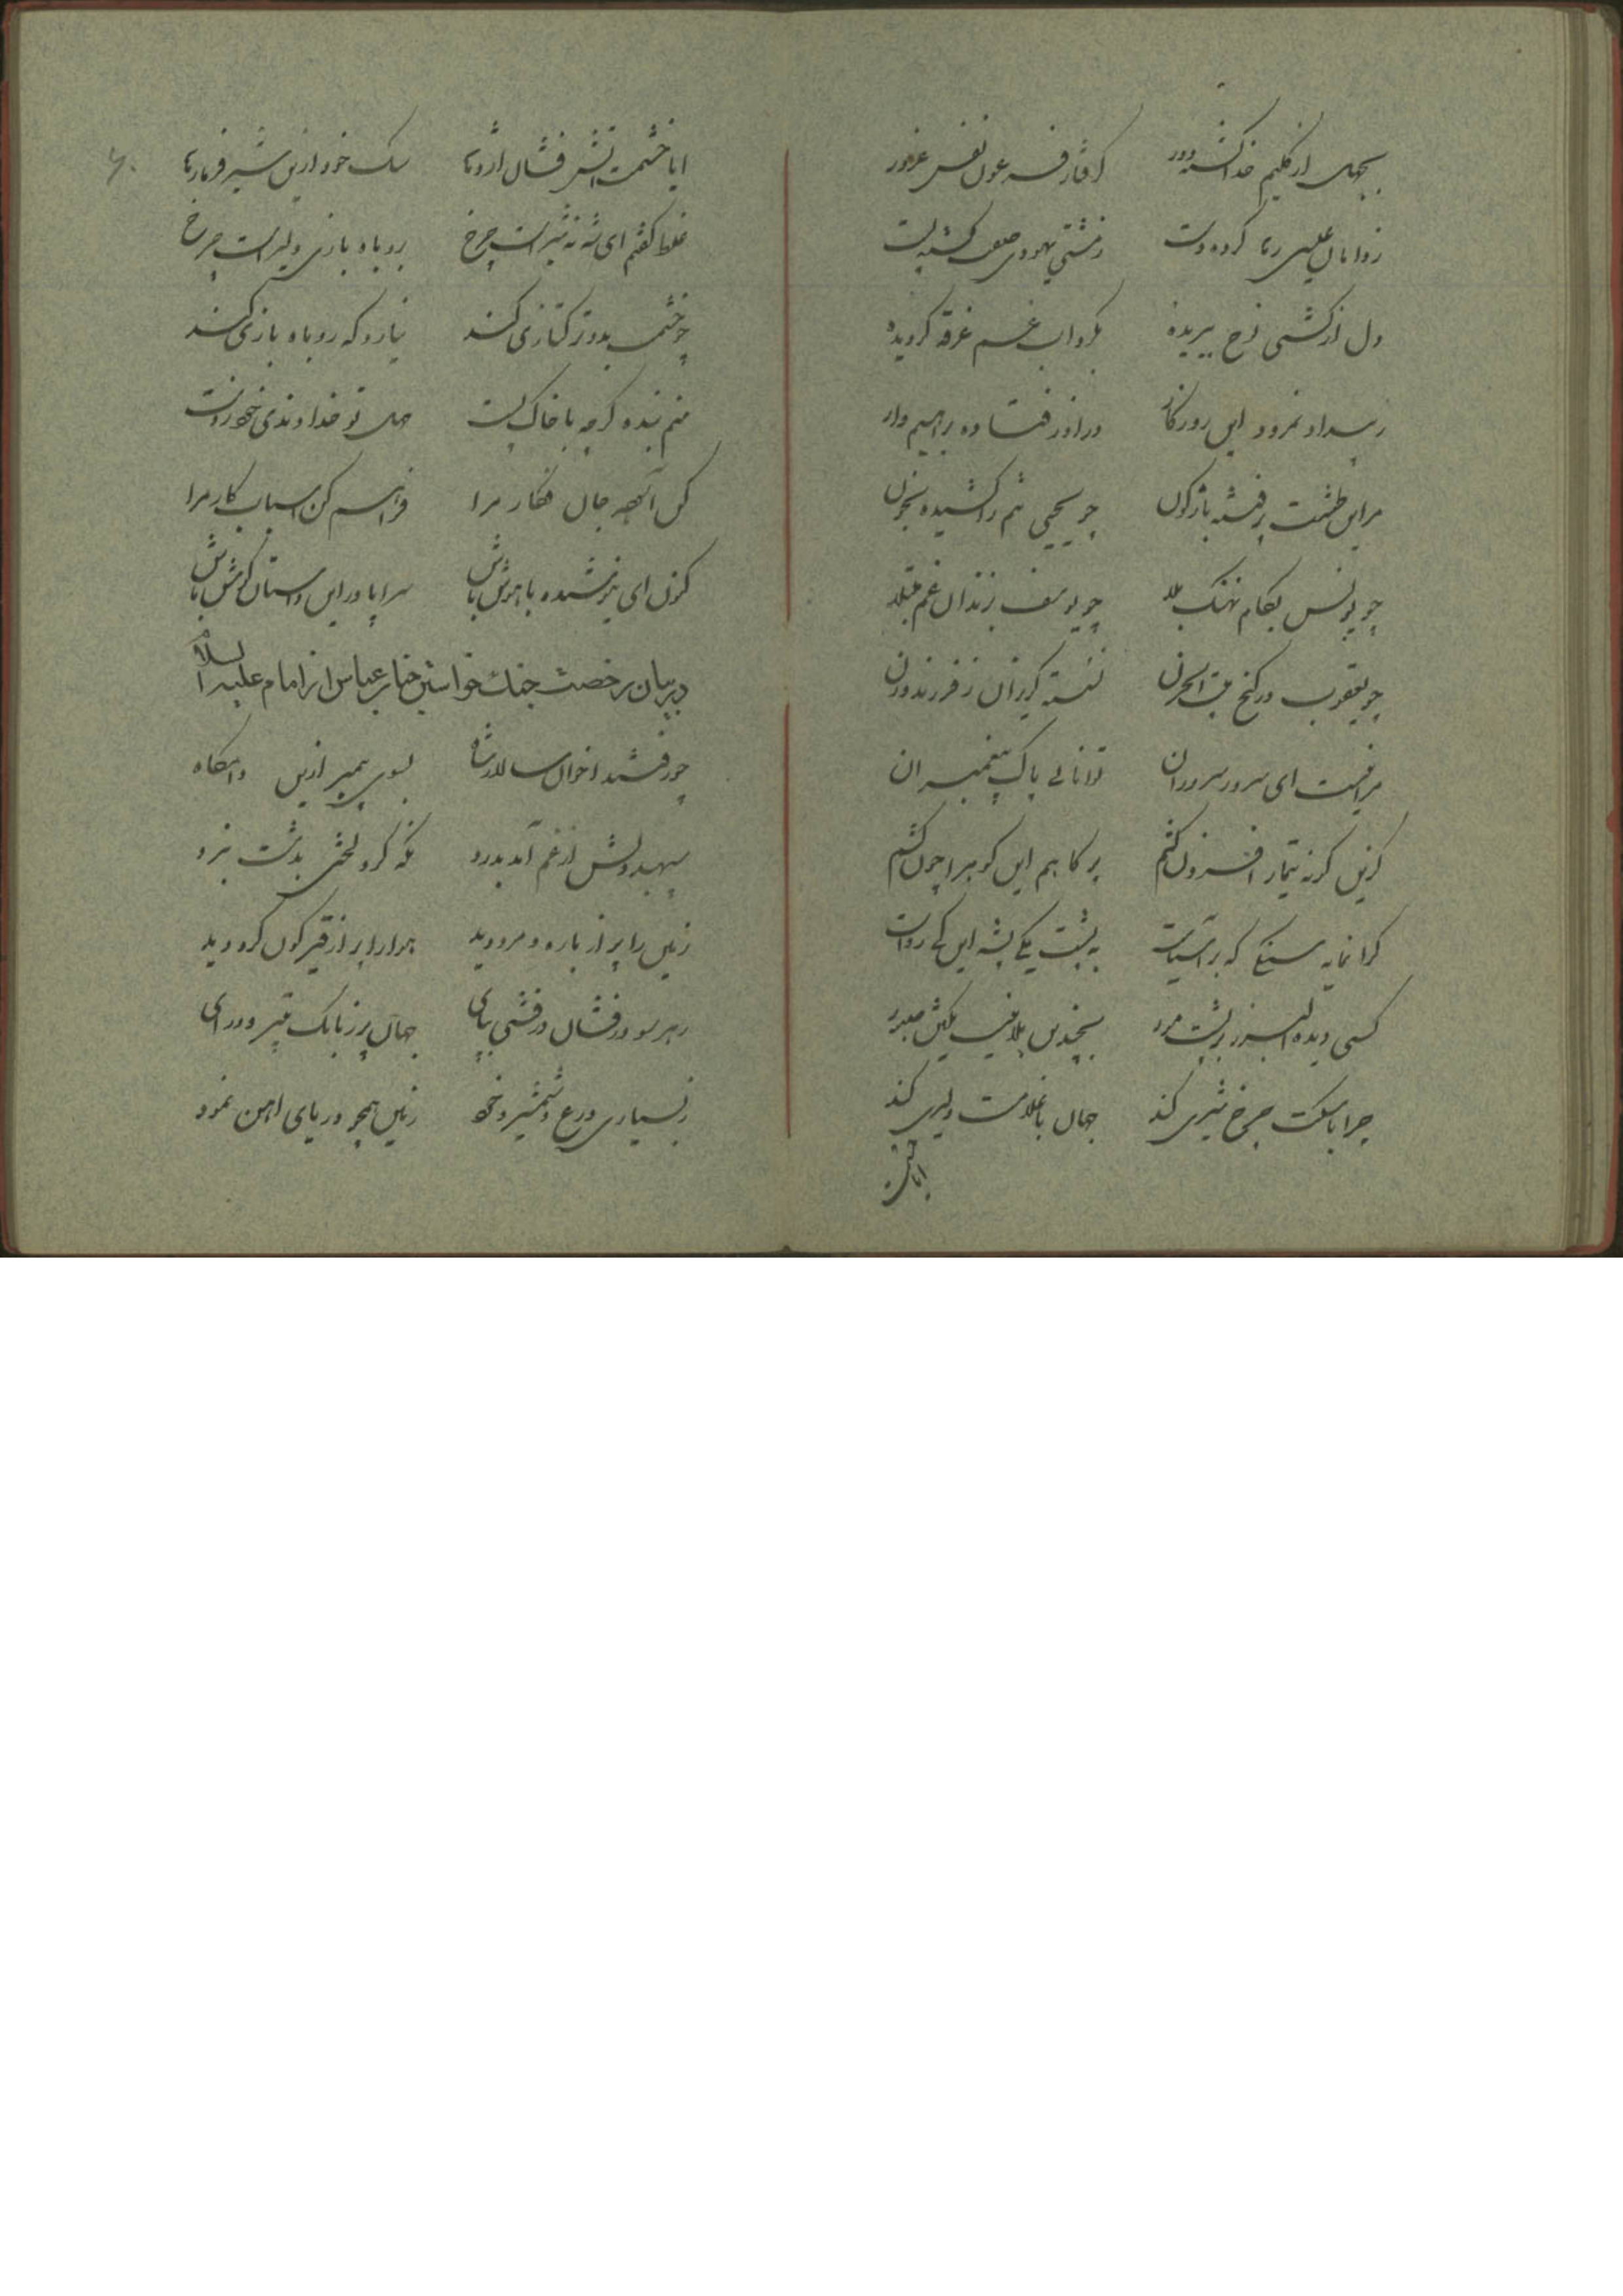 بجهل از کلیم خدا گشته دور گرفتار فرعون نفس غرور
ز دامان عیسی رها کرده دست زشتی یهودی صف کشته پست
دل از کشتی نوح ببریده بگرداب غم غرقه گردیده
ز بیداد نمرود این روزگار در آذر فتاده براهیم وار
مر این طشت پر فتنه باژگون چو یحیی تنم را کشیده بخون
چو یونس بکام نهنگ بلا چو یوسف بزندان غم مبتلا
چو یعقوب در کنج بیت الحزن نشسته گریزان ز فرزند و زن
مراهست ای سرور سروران توانائی پاک پیغمبران
کزین گرنه تیمار افزون کشم پر کاهم این کوه را چون کشم
گرانمایه سنگی که بر آسیاست به پشت یکی پشه این کی رواست
کسی دیده البرز بر پشت مور
چرا با سگت چرخ شیری کند جهان با غلامت دلیری کند
ایا خشمت آتش فشان اژدها سگ خود ازین شیر فرما رها
غلط گفتم ای شه نه شیر است چرخ بروباه بازی دلیر است چرخ
چو خشمت بدو ترکتازی کند نیارد که روباه بازی کند
منم بنده گرچه با خاک پست ترا خداوندی خود است
کن آگه جان فکار مرا فراهم کن اسباب کار مرا
کنون ای نیوشنده با هوش باش سراپا در این داستان گوش باش
در بیان رخصت جنگ خواستن جناب عباس از امام علیه السلام
چو رفتند اخوان سالار شاه بسوی پیمبر ازین دامگاه
سپهبد دلش از غم آمد بدرد نگه کرد لختی بدشت نبرد
زمین را پر از باره و مرد دید هوا را پر از قیرگون گرد دید
بهر سو درفشان درفشی بپای جهان پر ز بانگ و درای
ز بسیاری درع و شمشیر و خود زمین همچو دریای آهن نمود